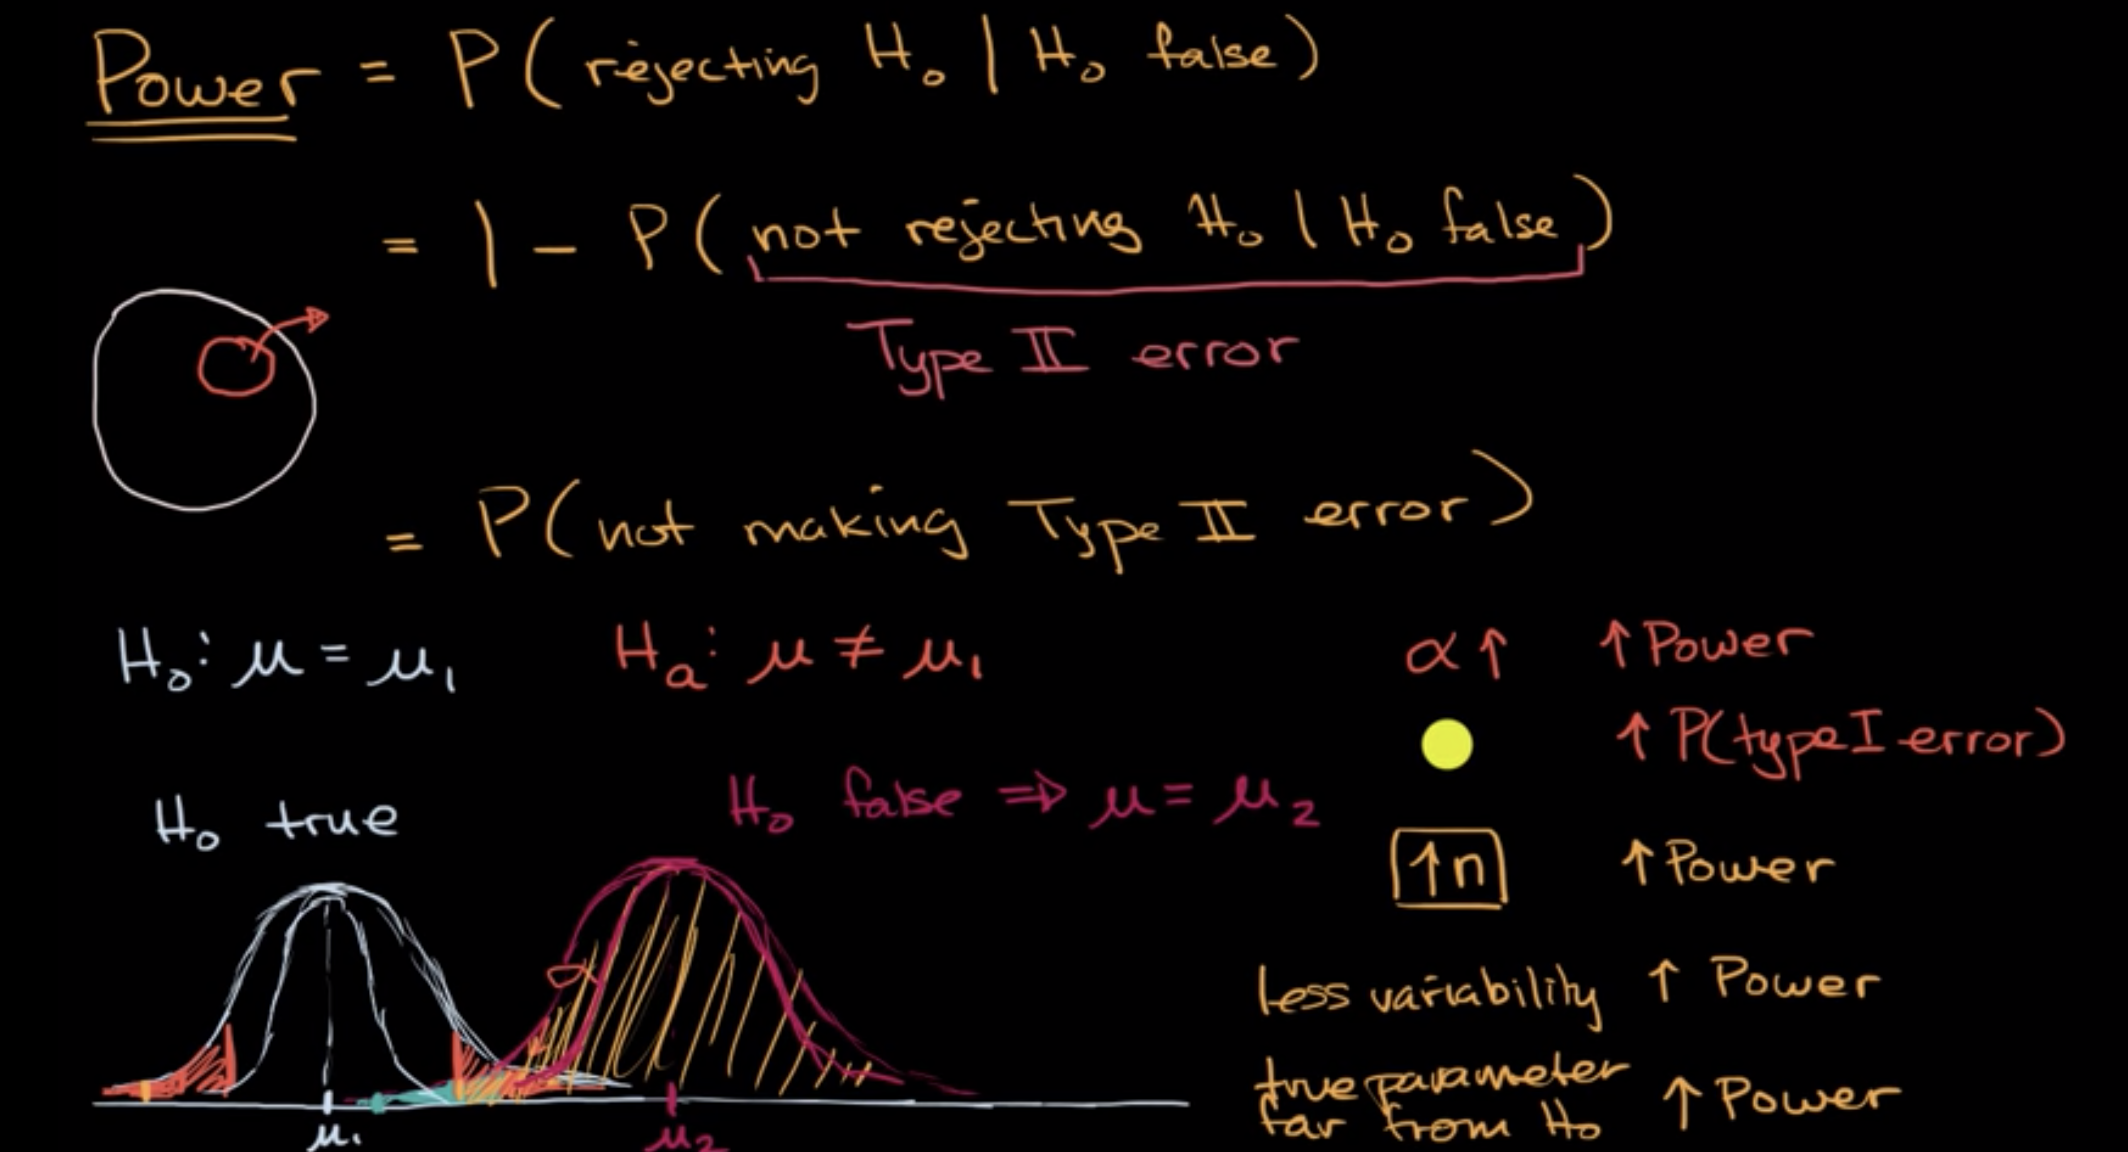 Power = P(rejecting H₀ | H₀ false)
= 1 - P(not rejecting H₀ | H₀ false)
Type II error
= P(not making Type II error)
H₀: μ = μ₁
Hₐ: μ ≠ μ₁
α↑ ↑Power
↑P(type I error)
H₀ true
H₀ false ⇒ μ = μ₂
↑n ↑Power
less variability ↑ Power
true parameter
far from H₀ ↑ Power
α
μ₁
μ₂